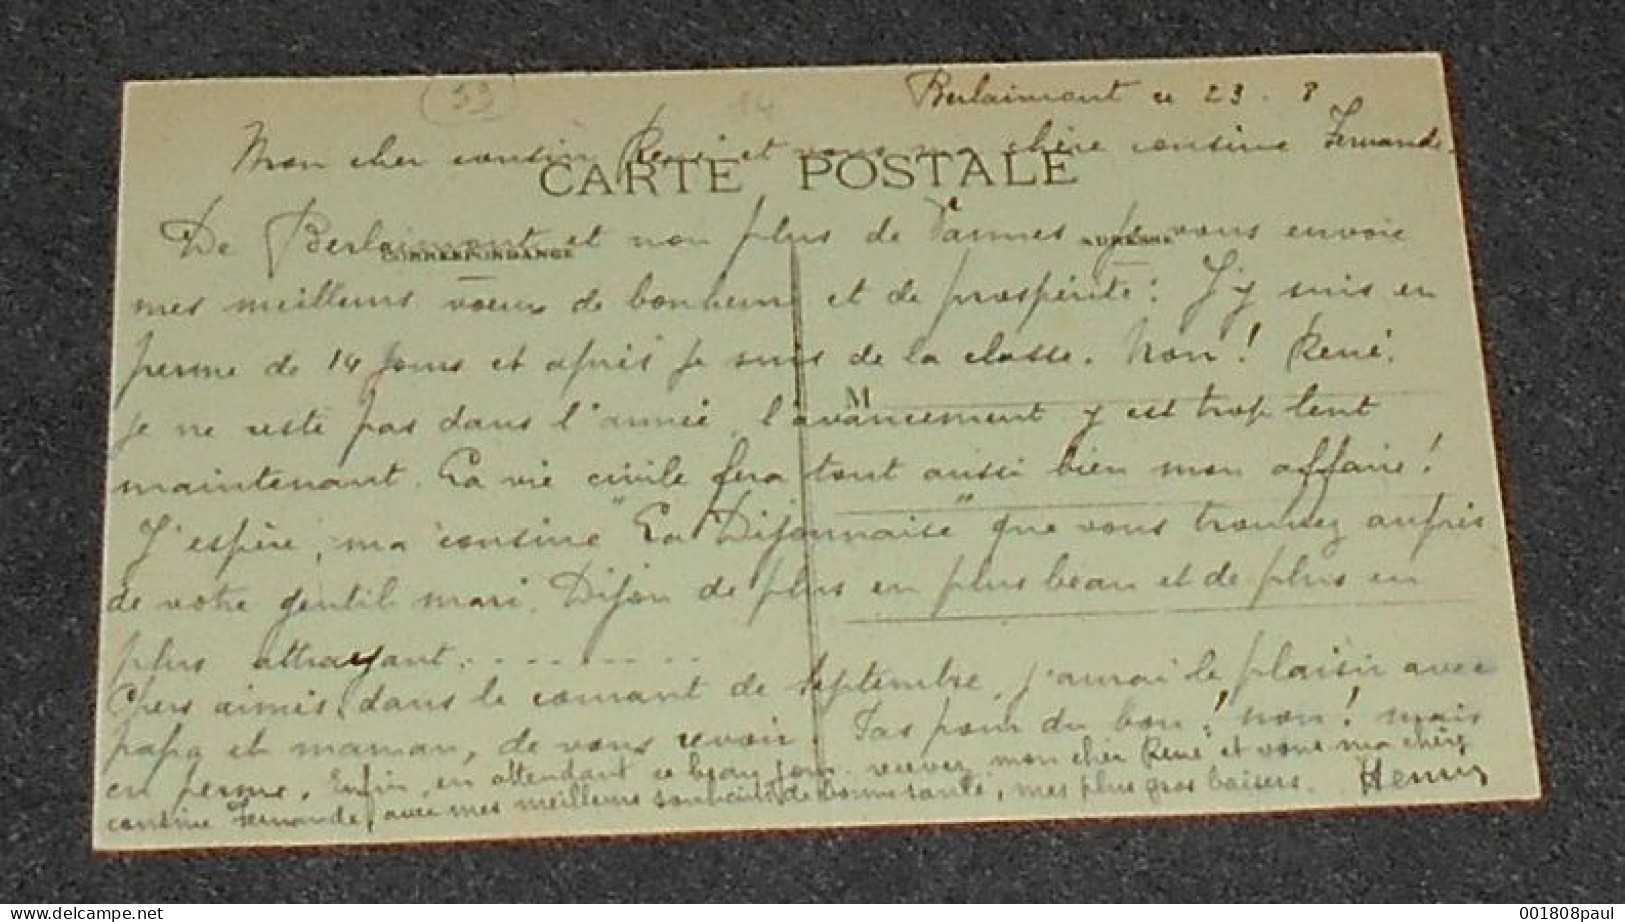 59
14
Berlaimont ce 23. 8
Mon cher cousin René et vous ma chère cousine Fernande.
CARTE POSTALE
De Berlaimont et non plus de Vannes je vous envoie
CORRESPONDANCE
ADRESSE
mes meilleurs voeux de bonheur et de prospérité. J'y suis en
perme de 14 jours et après je suis de la classe. Non! René.
M
je ne reste pas dans l'armée, l'avancement y est trop lent
maintenant. La vie civile fera tout aussi bien mon affaire!
J'espère, ma cousine "La Dijonnaise" que vous trouvez auprès
de votre gentil mari. Dijon de plus en plus beau et de plus en
plus attrayant. - - - - - - - -
Chers aimés, dans le courant de septembre, j'aurai le plaisir avec
papa et maman, de vous revoir. Pas pour du bon! non! mais
en perme. Enfin, en attendant ce beau jour recevez mon cher René et vous ma chère
cousine Fernande, avec mes meilleurs souhaits de bonne santé, mes plus gros baisers. Henri
www.delcampe.net
001808paul